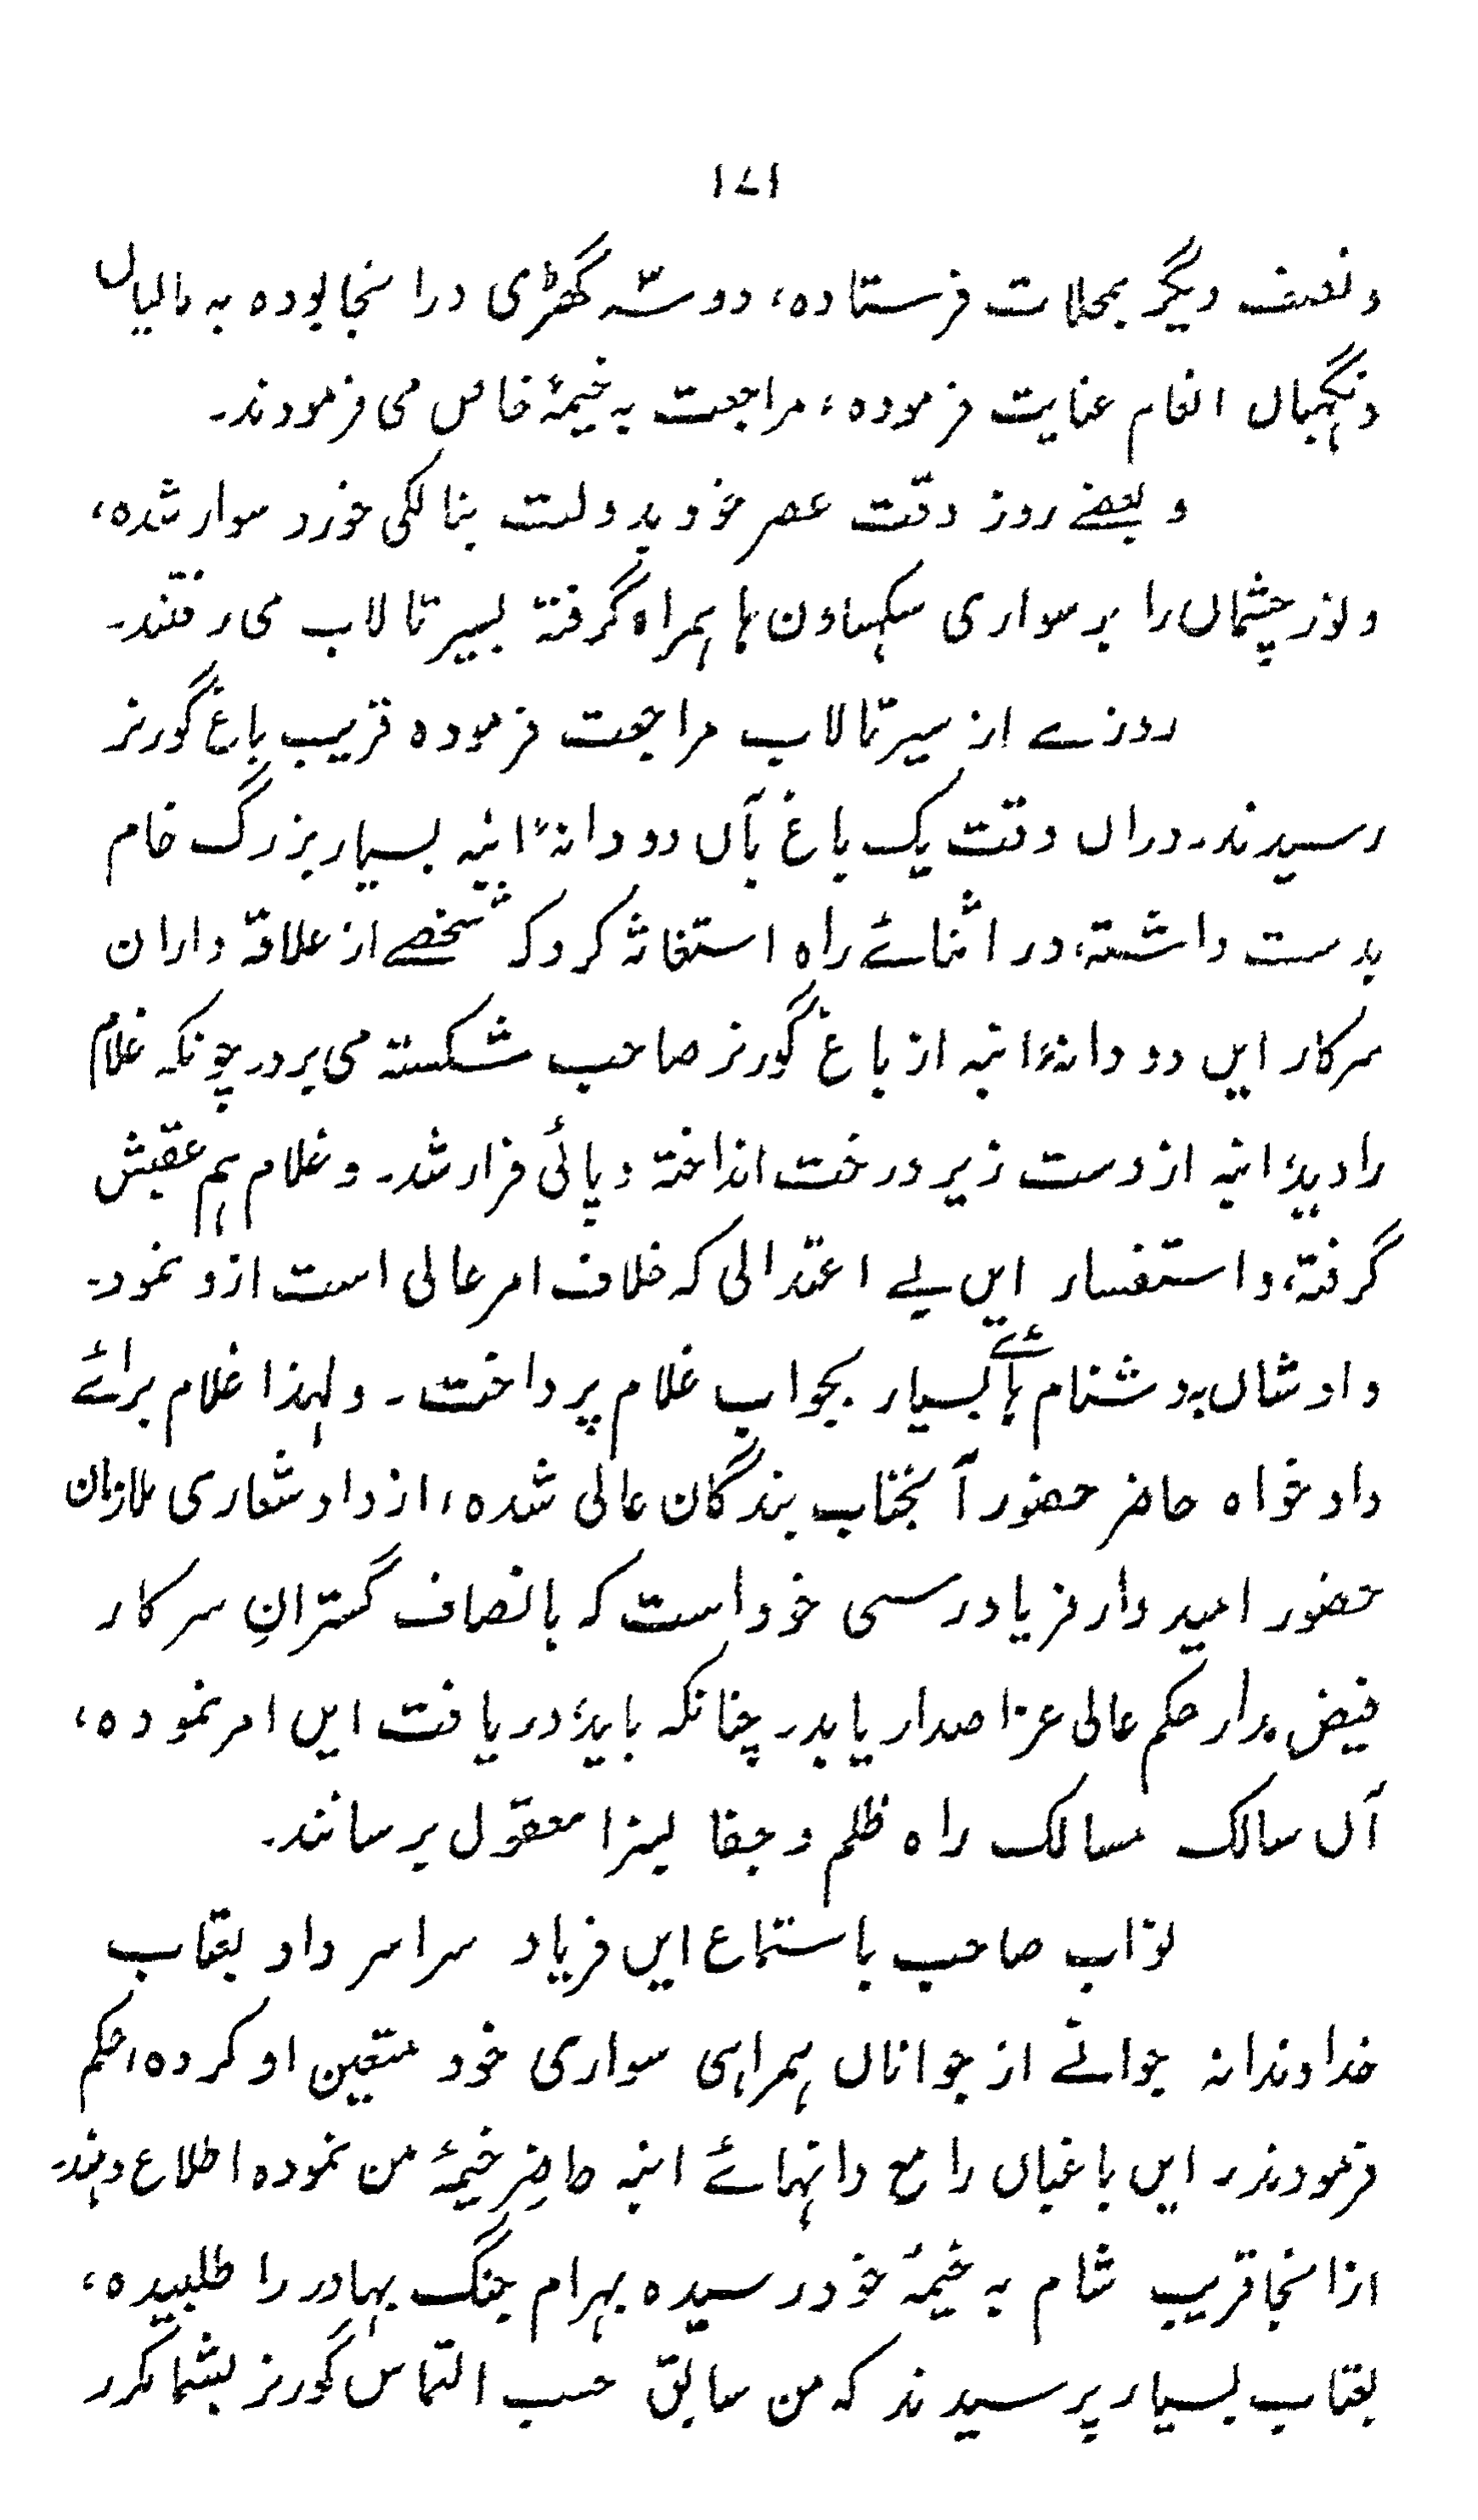 ۱۷۱
و نصف دیگر بمحلات فرستاده، دو سہ گھڑی در انجا بودہ بہ مالیاں
و نگہباں انعام عنایت فرمودہ، مراجعت بہ خیمۂ خاص می فرمودند۔
و بعضے روز وقت عصر خود بدولت بنالکی خورد سوار شدہ،
و نور چشماں را بر سواری سکہاون ہا ہمراہ گرفتہ بسیر تالاب می رفتند۔
روزے از سیر تالاب مراجعت فرمودہ قریب باغ گورنر
رسیدند۔ دراں وقت یک باغ باں دو دانۂ انبہ بسیار بزرگ خام
بدست داشتہ، در اثنائے راہ استغاثہ کرد کہ شخصے از علاقہ داران
سرکار ایں دو دانۂ انبہ از باغ گورنر صاحب شکستہ می برد۔ چونکہ غلام
را دید، انبہ از دست زیر درخت انداختہ و پائی فرار شد۔ و غلام ہم عقبش
گرفتہ، و استفسار ایں بے اعتدالی کہ خلاف امر عالی است ازو نمود۔
و او شاں بدشنام ہائے بسیار بجواب غلام پرداخت۔ ولہذا غلام برائے
داد خواہ حاضر حضور آنجناب بندگان عالی شدہ، از داد شعاری ملازمان
حضور امیدوار فریاد رسی خود است کہ بانصاف گسترانِ سرکار
فیض مدار حکم عالی عز اصدار یابد۔ چنانکہ باید، دریافت ایں امر نمودہ،
آں سالک مسالک راہ ظلم و جفا بسزا معقول برسانند۔
نوّاب صاحب باستماع ایں فریاد سراسر داد بعتاب
خداوندانہ جوانے از جوانان ہمراہی سواری خود متعین او کردہ، حکم
فرمودند۔ ایں باغباں را مع دانہائے انبہ حاضرِ خیمۂ من نمودہ اطلاع دہند۔
ازانجا قریب شام بہ خیمۂ خود رسیدہ بہرام جنگ بہادر را طلبیدہ،
بعتاب بسیار پرسیدند کہ من سابق حسب التماس گورنر بشما مکرر